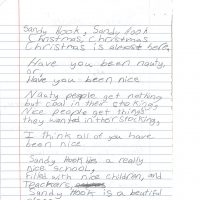 Sandy Hook, Sandy Hook
Christmas, Christmas
Christmas is almost here,
Have you been nauty,
or,
Have you been nice
Nauty people get nothing
but coal in their stocking,
Nice people get things
they wanted in their stocking,
I think all of you have
been nice
Sandy Hook is a really
nice school,
filled with nice children, and
teachers,
Sandy Hook is a beutiful